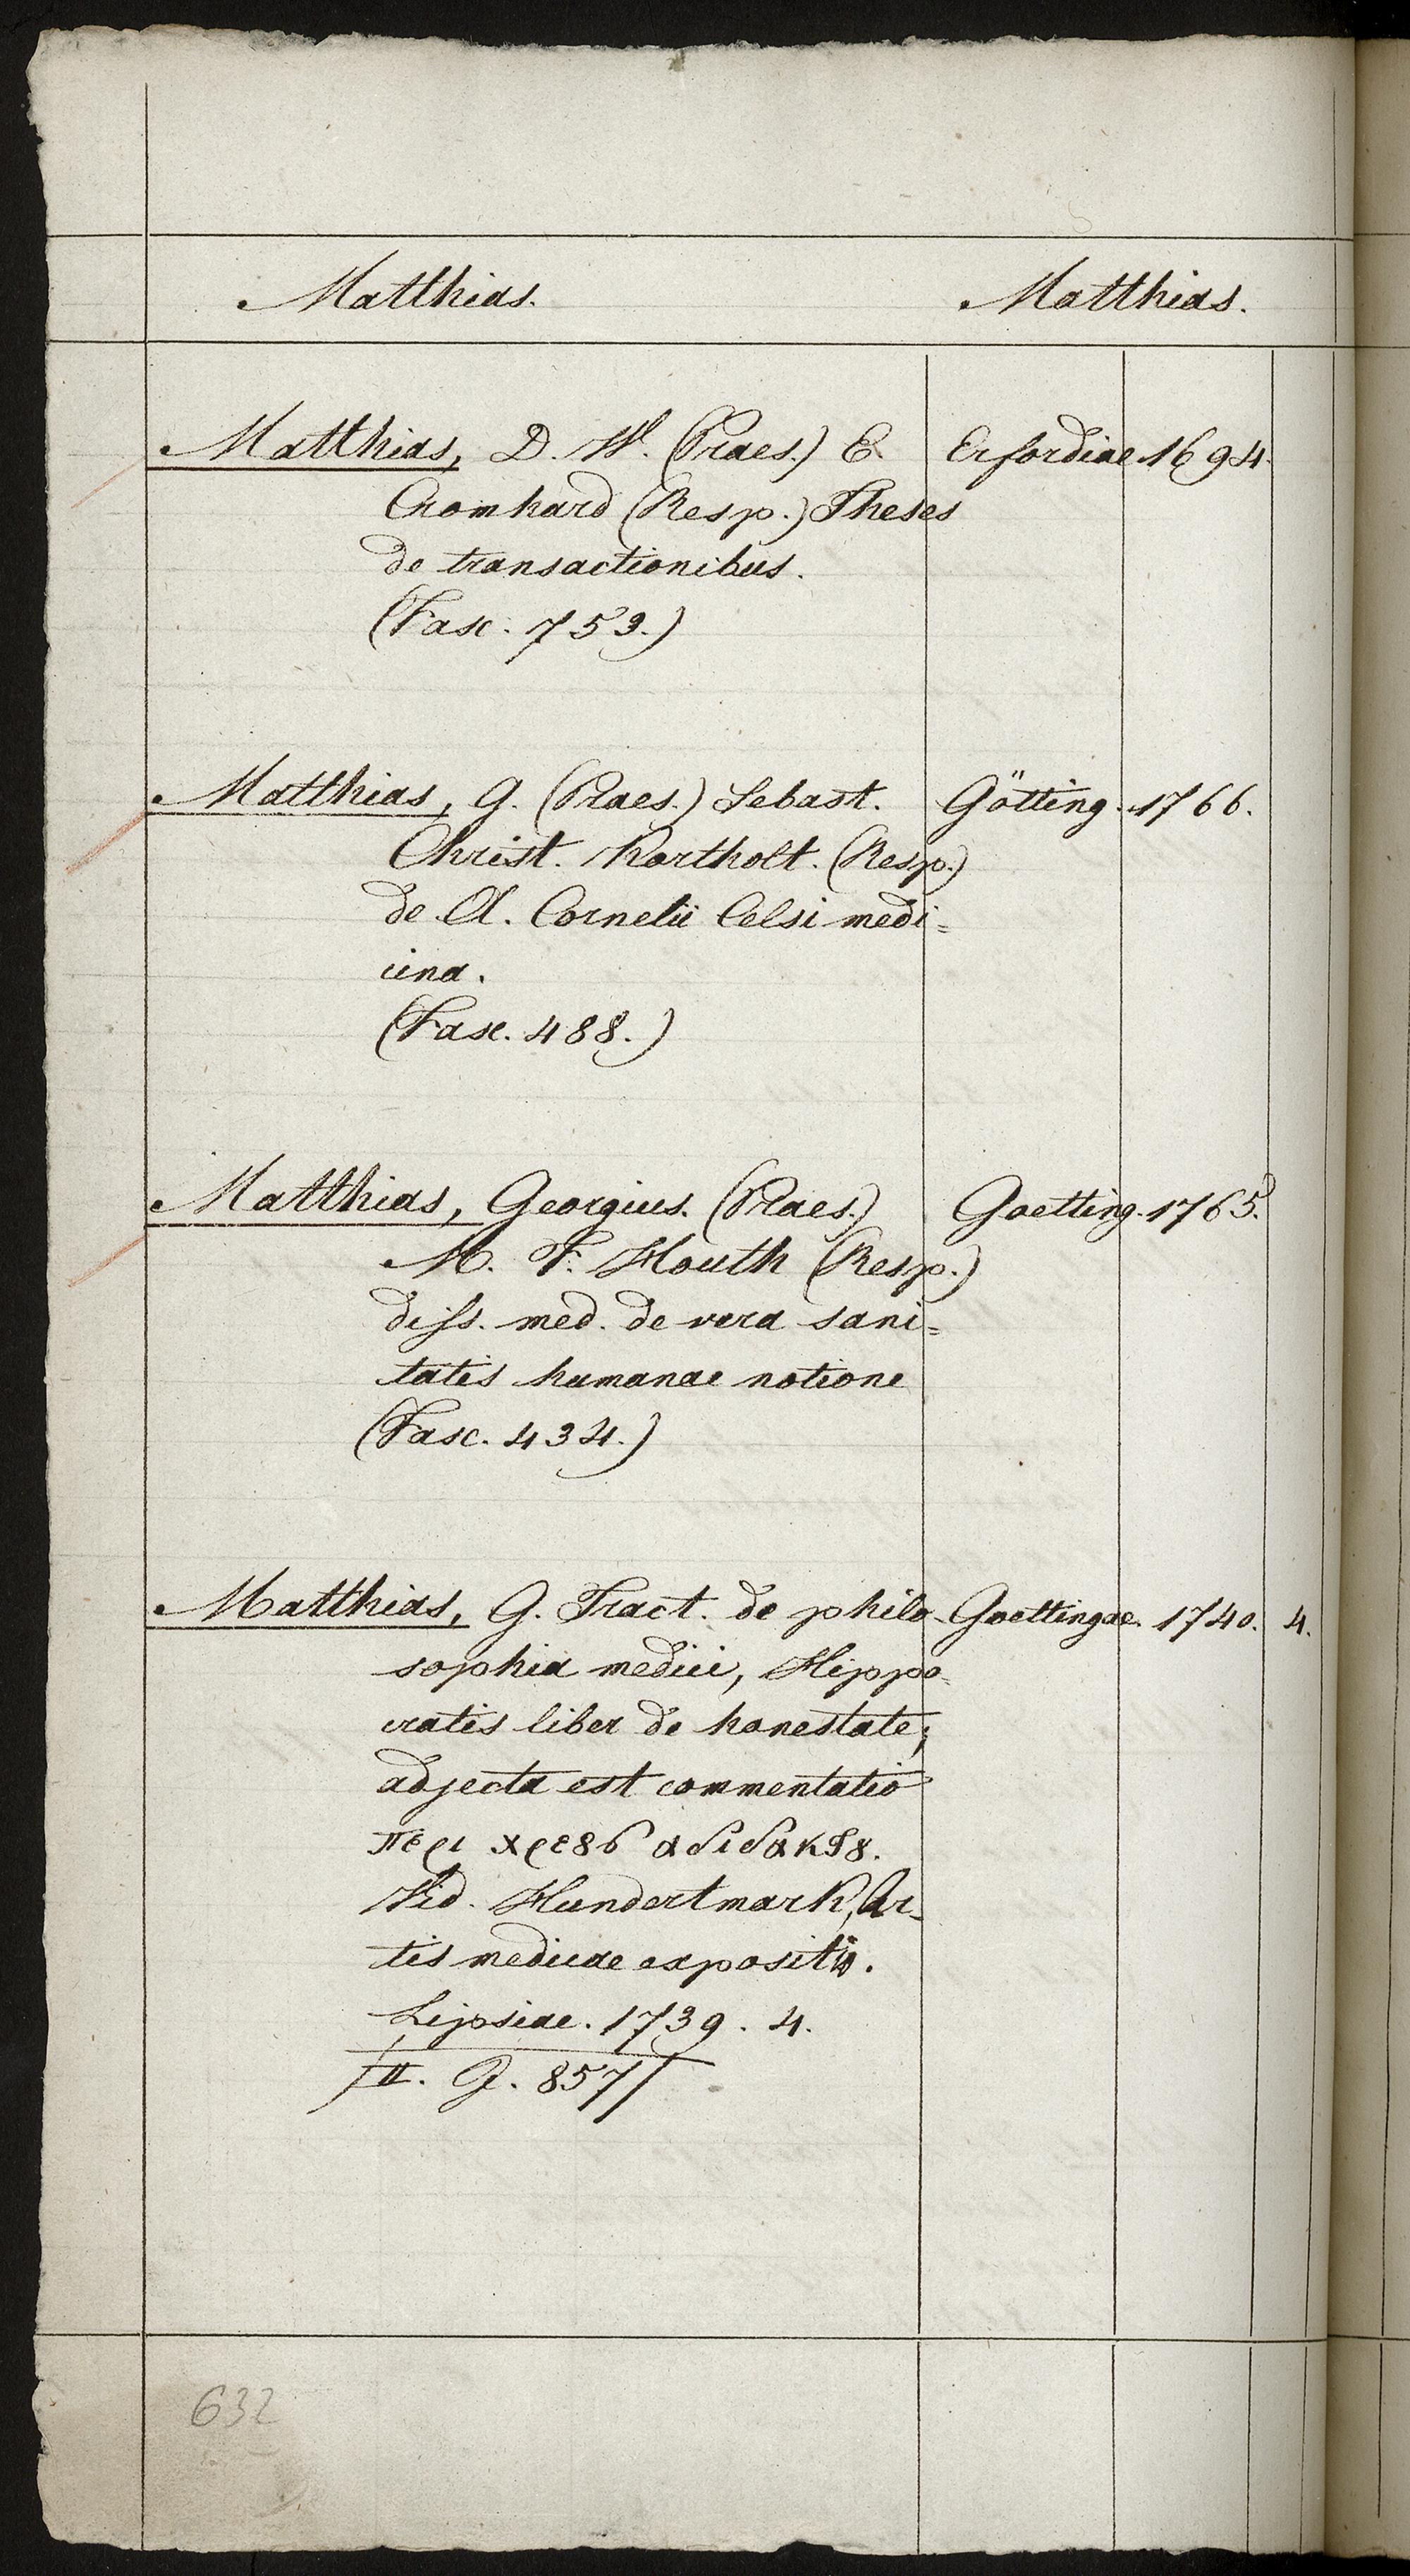 Matthias. Matthias.
Matthias, D. W. (Praes.) E. Erfordiae 1694.
Cromhard (Resp.) Theses
de transactionibus.
(Fasc. 753.)
Matthias, G. (Praes.) Sebast. Götting. 1766.
Christ. Kortholt. (Resp.)
de A. Cornelii Celsi medi=
cina.
(Fasc. 488.)
Matthias, Georgius. (Praes.) Goetting. 1765.
M. F. Houth (Resp.)
diss. med. de vera sani=
tatis humanae notione
(Fasc. 434.)
Matthias, G. Tract. de philo- Goettingae. 1740. 4.
sophia medici, Hippo-
cratis liber de honestate;
adjecta est commentatio
περι
Vid. Hundertmark, Ar-
tis medicae expositio.
Lipsiae. 1739. 4.
II. G. 857
632